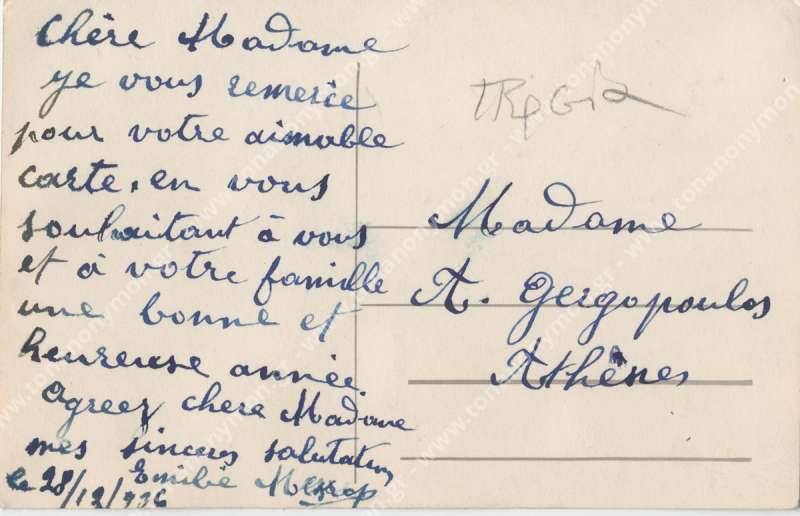 Chère Madame
je vous remercie
pour votre aimable
carte, en vous
souhaitant à vous
et à votre famille
une bonne et
heureuse année.
Agreez chere Madame
mes sinceres salutations
Emilie
le 28/12/936
Madame
A. Gergopoulos
Athènes